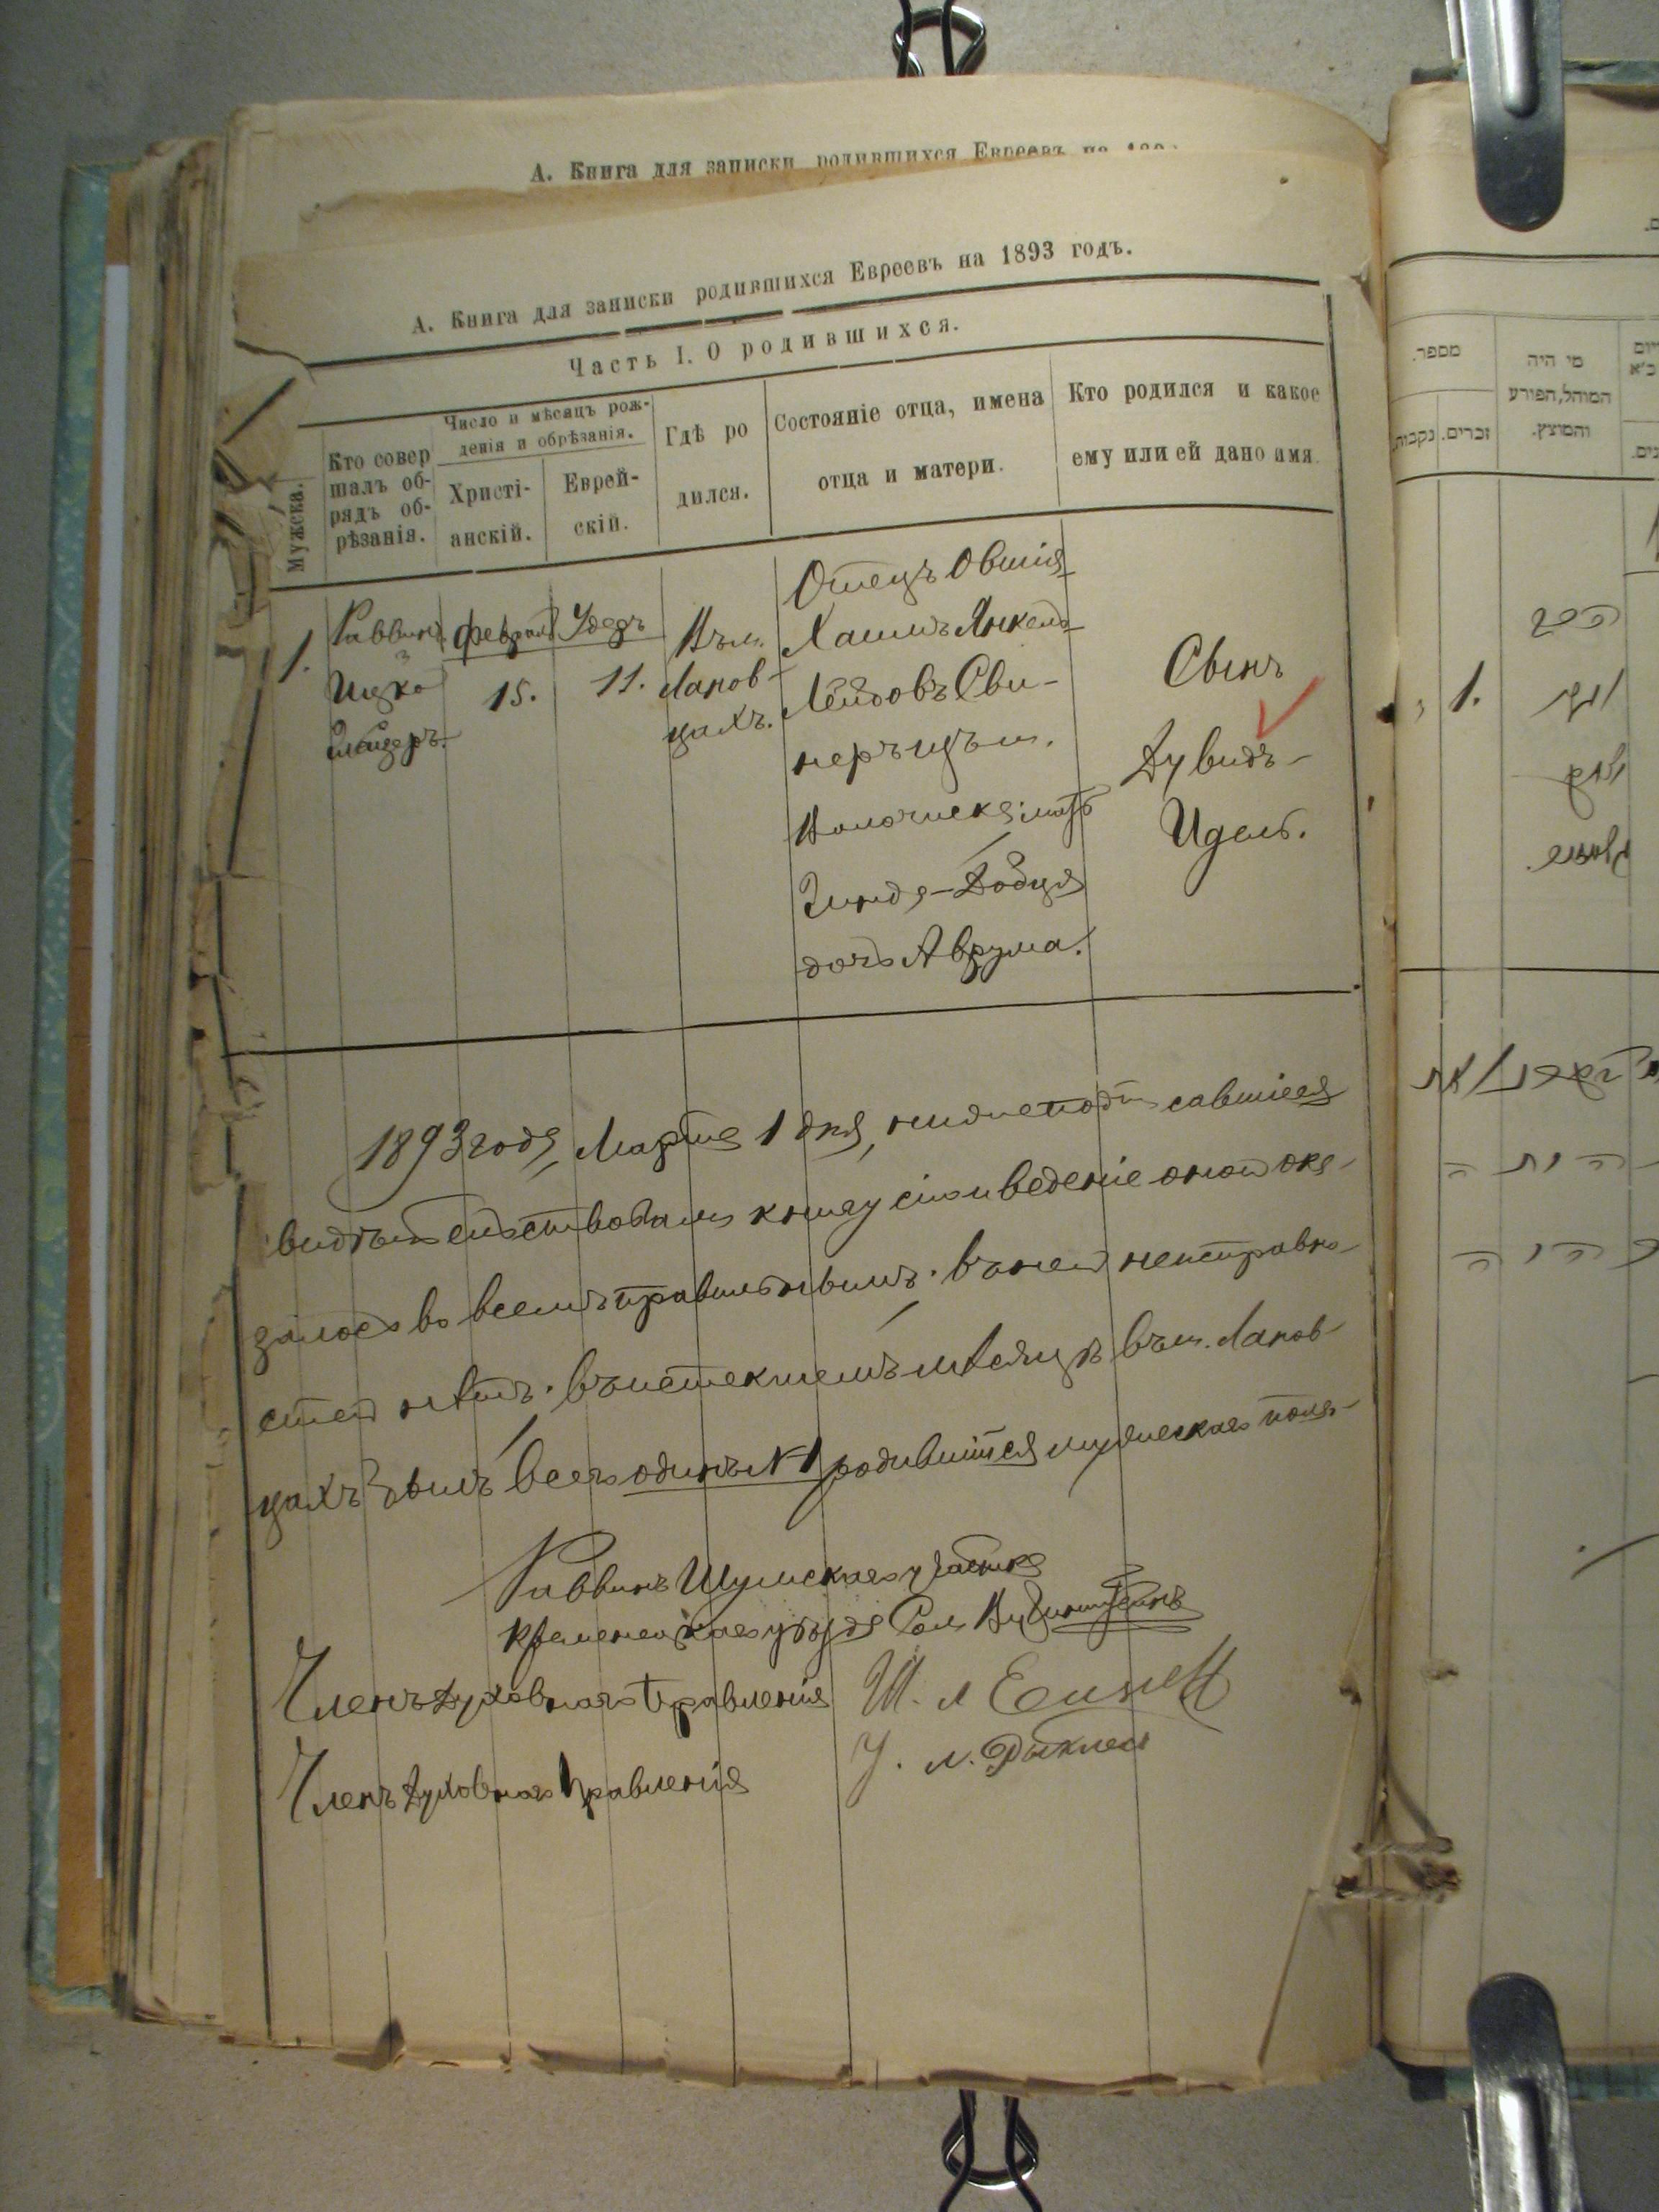 А. Книга для записки родившихся Евреевъ на
А. Книга для записки родившихся Евреевъ на 1893 годъ.
Часть I. О родившихся.
Мужска.
Кто совер
шалъ об-
рядъ об-
рѣзанія.
Число и мѣсяцъ рож-
денія и обрѣзанія.
Христі-
анскій.
Еврей-
скій.
Гдѣ ро
дился.
Состояніе отца, имена
отца и матери.
Кто родился и какое
ему или ей дано имя.
1.
Раввинъ
Ицко
февраля
15.
11.
Въ м.
Ланов-
цахъ.
Отецъ Овшія-
Хаимъ Янкель-
Лейбовъ Сви-
неръ изъ м.
Волочиска; мать
Зинда-Бобця
дочь Аврума.
Сынъ
Дувидъ-
Идель.
1893 года, Марта 1 дня, нижеподписавшіеся
свидѣтельствовали книгу сію и веденіе оной ока-
залось во всемъ правильнымъ. въ ней неисправно-
стей нѣтъ. въ истекшемъ мѣсяцѣ въ м. Ланов-
цахъ былъ всего одинъ N 1 родившійся мужескаго пола.
Раввинъ Шумскаго участка
Кременецкаго уѣзда
Членъ Духовнаго Правленія
Членъ Духовнаго Правленія
מספר.
נקבות.
זכרים.
מי היה
המוהל, הפורע
והמוצץ.
1.